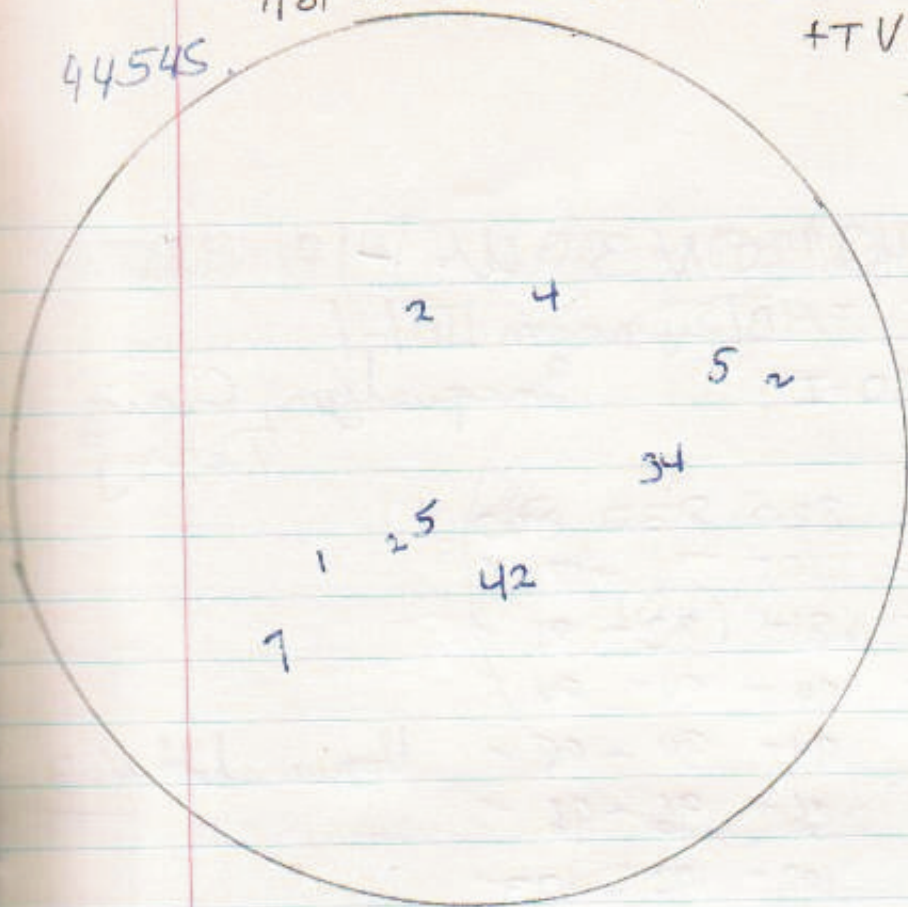 +TV
44545
2 4
5 2
34
2 5
1
42
7